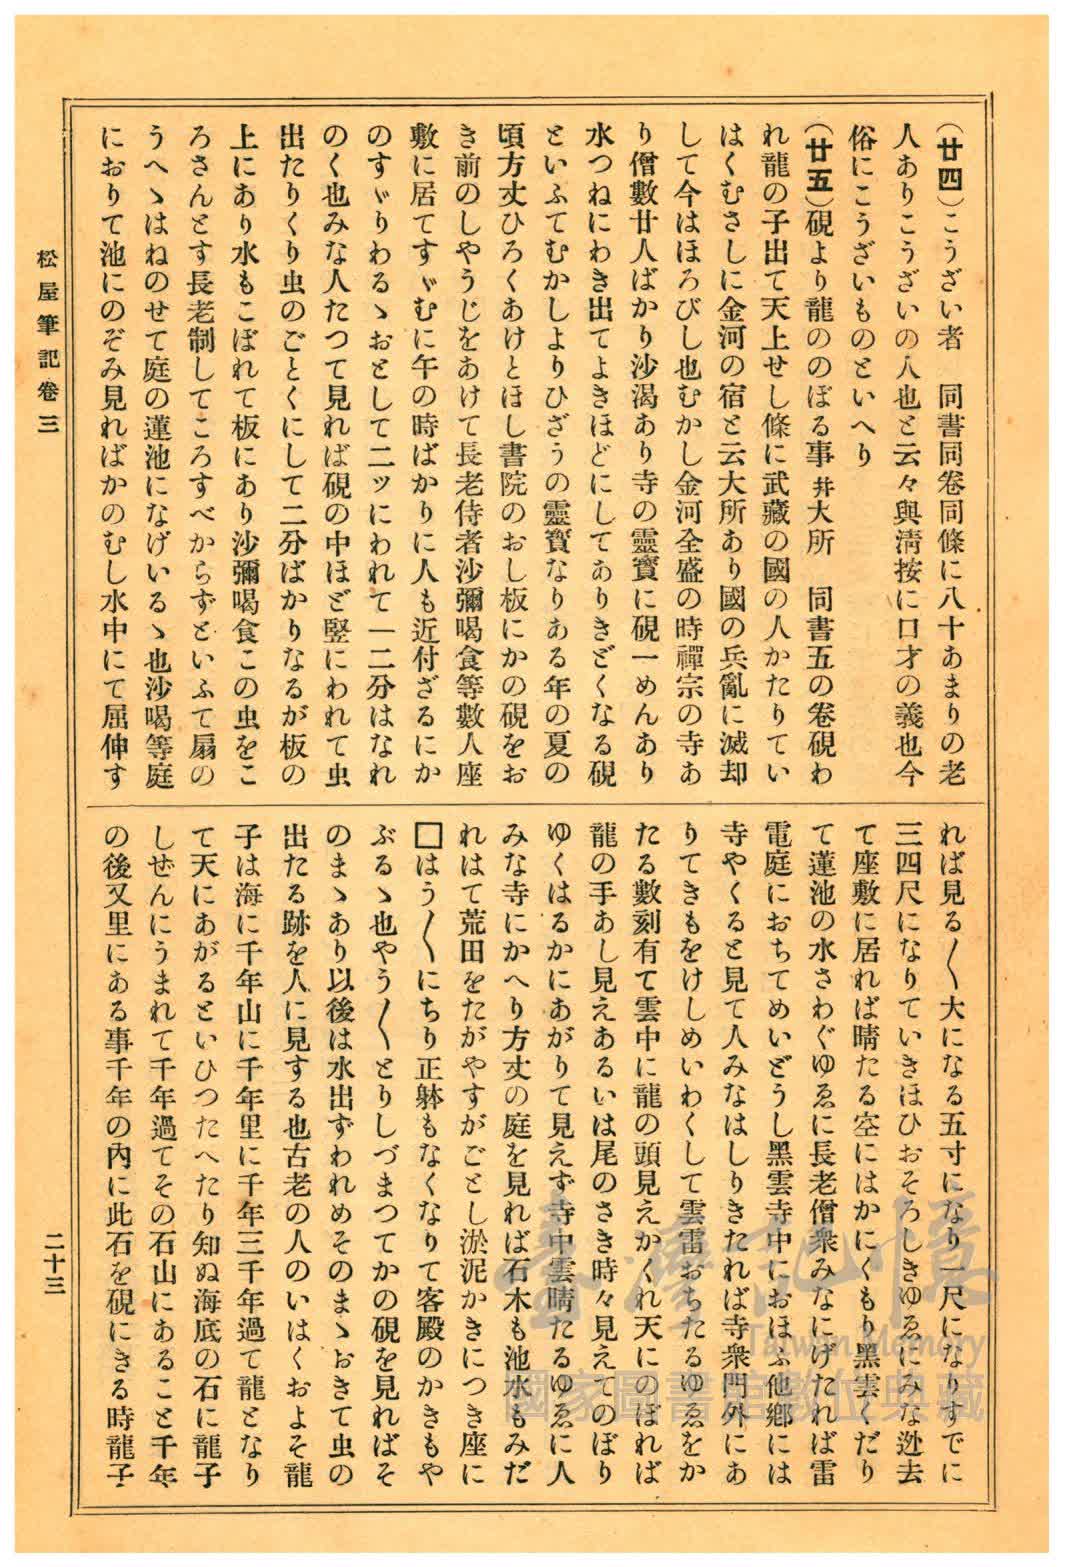 (廿四)こうざい者　同書同卷同條に八十あまりの老
人ありこうざいの人也と云々與淸按に口才の義也今
俗にこうざいものといへり
(廿五)硯より龍ののぼる事幷大所　同書五の卷硯わ
れ龍の子出て天上せし條に武藏の國の人かたりてい
はくむさしに金河の宿と云大所あり國の兵亂に滅却
して今はほろびし也むかし金河全盛の時禪宗の寺あ
り僧數廿人ばかり沙渴あり寺の靈寶に硯一めんあり
水つねにわき出てよきほどにしてありきどくなる硯
といふてむかしよりひざうの靈寳なりある年の夏の
頃方丈ひろくあけとほし書院のおし板にかの硯をお
き前のしやうじをあけて長老侍者沙彌喝食等數人座
敷に居てすゞむに午の時ばかりに人も近付ざるにか
のすゞりわるゝおとして二ッにわれて一二分はなれ
のく也みな人たつて見れば硯の中ほど竪にわれて虫
出たりくり虫のごとくにして二分ばかりなるが板の
上にあり水もこぼれて板にあり沙彌喝食この虫をこ
ろさんとす長老制してころすべからずといふて扇の
うへゝはねのせて庭の蓮池になげいるゝ也沙喝等庭
におりて池にのぞみ見ればかのむし水中にて屈伸す
れば見る〳〵大になる五寸になり一尺になりすでに
三四尺になりていきほひおそろしきゆゑにみな迯去
て座敷に居れば晴たる空にはかにくもり黑雲くだり
て蓮池の水さわぐゆゑに長老僧衆みなにげたれば雷
電庭におちてめいどうし黑雲寺中におほふ他鄕には
寺やくると見て人みなはしりきたれば寺衆門外にあ
りてきもをけしめいわくして雲雷おちたるゆゑをか
たる數刻有て雲中に龍の頭見えかくれ天にのぼれば
龍の手あし見えあるいは尾のさき時々見えてのぼり
ゆくはるかにあがりて見えず寺中雲晴たるゆゑに人
みな寺にかへり方丈の庭を見れば石木も池水もみだ
れはて荒田をたがやすがごとし淤泥かきにつき座に
□はう〳〵にちり正躰もなくなりて客殿のかきもや
ぶるゝ也やう〳〵とりしづまつてかの硯を見ればそ
のまゝあり以後は水出ずわれめそのまゝおきて虫の
出たる跡を人に見する也古老の人のいはくおよそ龍
子は海に千年山に千年里に千年三千年過て龍となり
て天にあがるといひつたへたり知ぬ海底の石に龍子
しぜんにうまれて千年過てその石山にあること千年
の後又里にある事千年の內に此石を硯にきる時龍子
松屋筆記卷三
二十三
臺灣記憶
Taiwan Memory
國家圖書館數位典藏